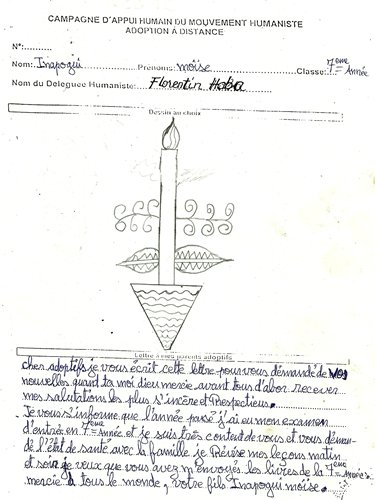 CAMPAGNE D'APPUI HUMAIN DU MOUVEMENT HUMANISTE
ADOPTION A DISTANCE
N°:..........
Nom: Inapogui Prénoms: moïse Classe: 7eme Année
Nom du Deleguee Humaniste: Florentin Haba
Dessin au choix
Lettre à mes parents adoptifs
cher adoptifs je vous écrit cette lettre pour vous démandé de vos
nouvelles quant ta moi dieu mercie avant tous d'abor recever
mes salutations les plus s'incère et Respectieus.
Je vous s'informe que l'année passé j'ai eu mon examen
d'entrée en 7eme Année et je suis très content de vous et vous deman-
de l'état de santé avec la famille je Révise mes leçons matin
et soir je veux que vous avez m'envoyés les livres de la 7eme Année
mercie à tous le monde, votre fils Inapogui moïse.